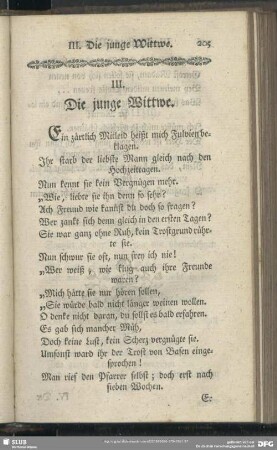 III. Die junge Wittwe. 205
III.
Die junge Wittwe.
Ein zärtlich Mitleid heißt mich Fulvien be-
klagen.
Ihr starb der liebste Mann gleich nach den
Hochzeittagen.
Nun kennt sie kein Vergnügen mehr.
„Wie, liebte sie ihn denn so sehr?
Ach Freund wie kannst du doch so fragen?
Wer zankt sich denn gleich in den ersten Tagen?
Sie war ganz ohne Ruh, kein Trostgrund rühr-
te sie.
Nun schwur sie oft, nun
„Wer weiß, wie klug auch ihre Freunde
waren?
„Mich hätte sie nur hören sollen,
„Sie würde bald nicht länger weinen wollen.
O denke nicht daran, du sollst es bald erfahren.
Es gab sich mancher Müh,
Doch keine Lust, kein Scherz vergnügte sie.
Umsonst ward ihr der Trost von Basen einge-
sprochen!
Man rief den Pfarrer selbst; doch erst nach
sieben Wochen.
Er